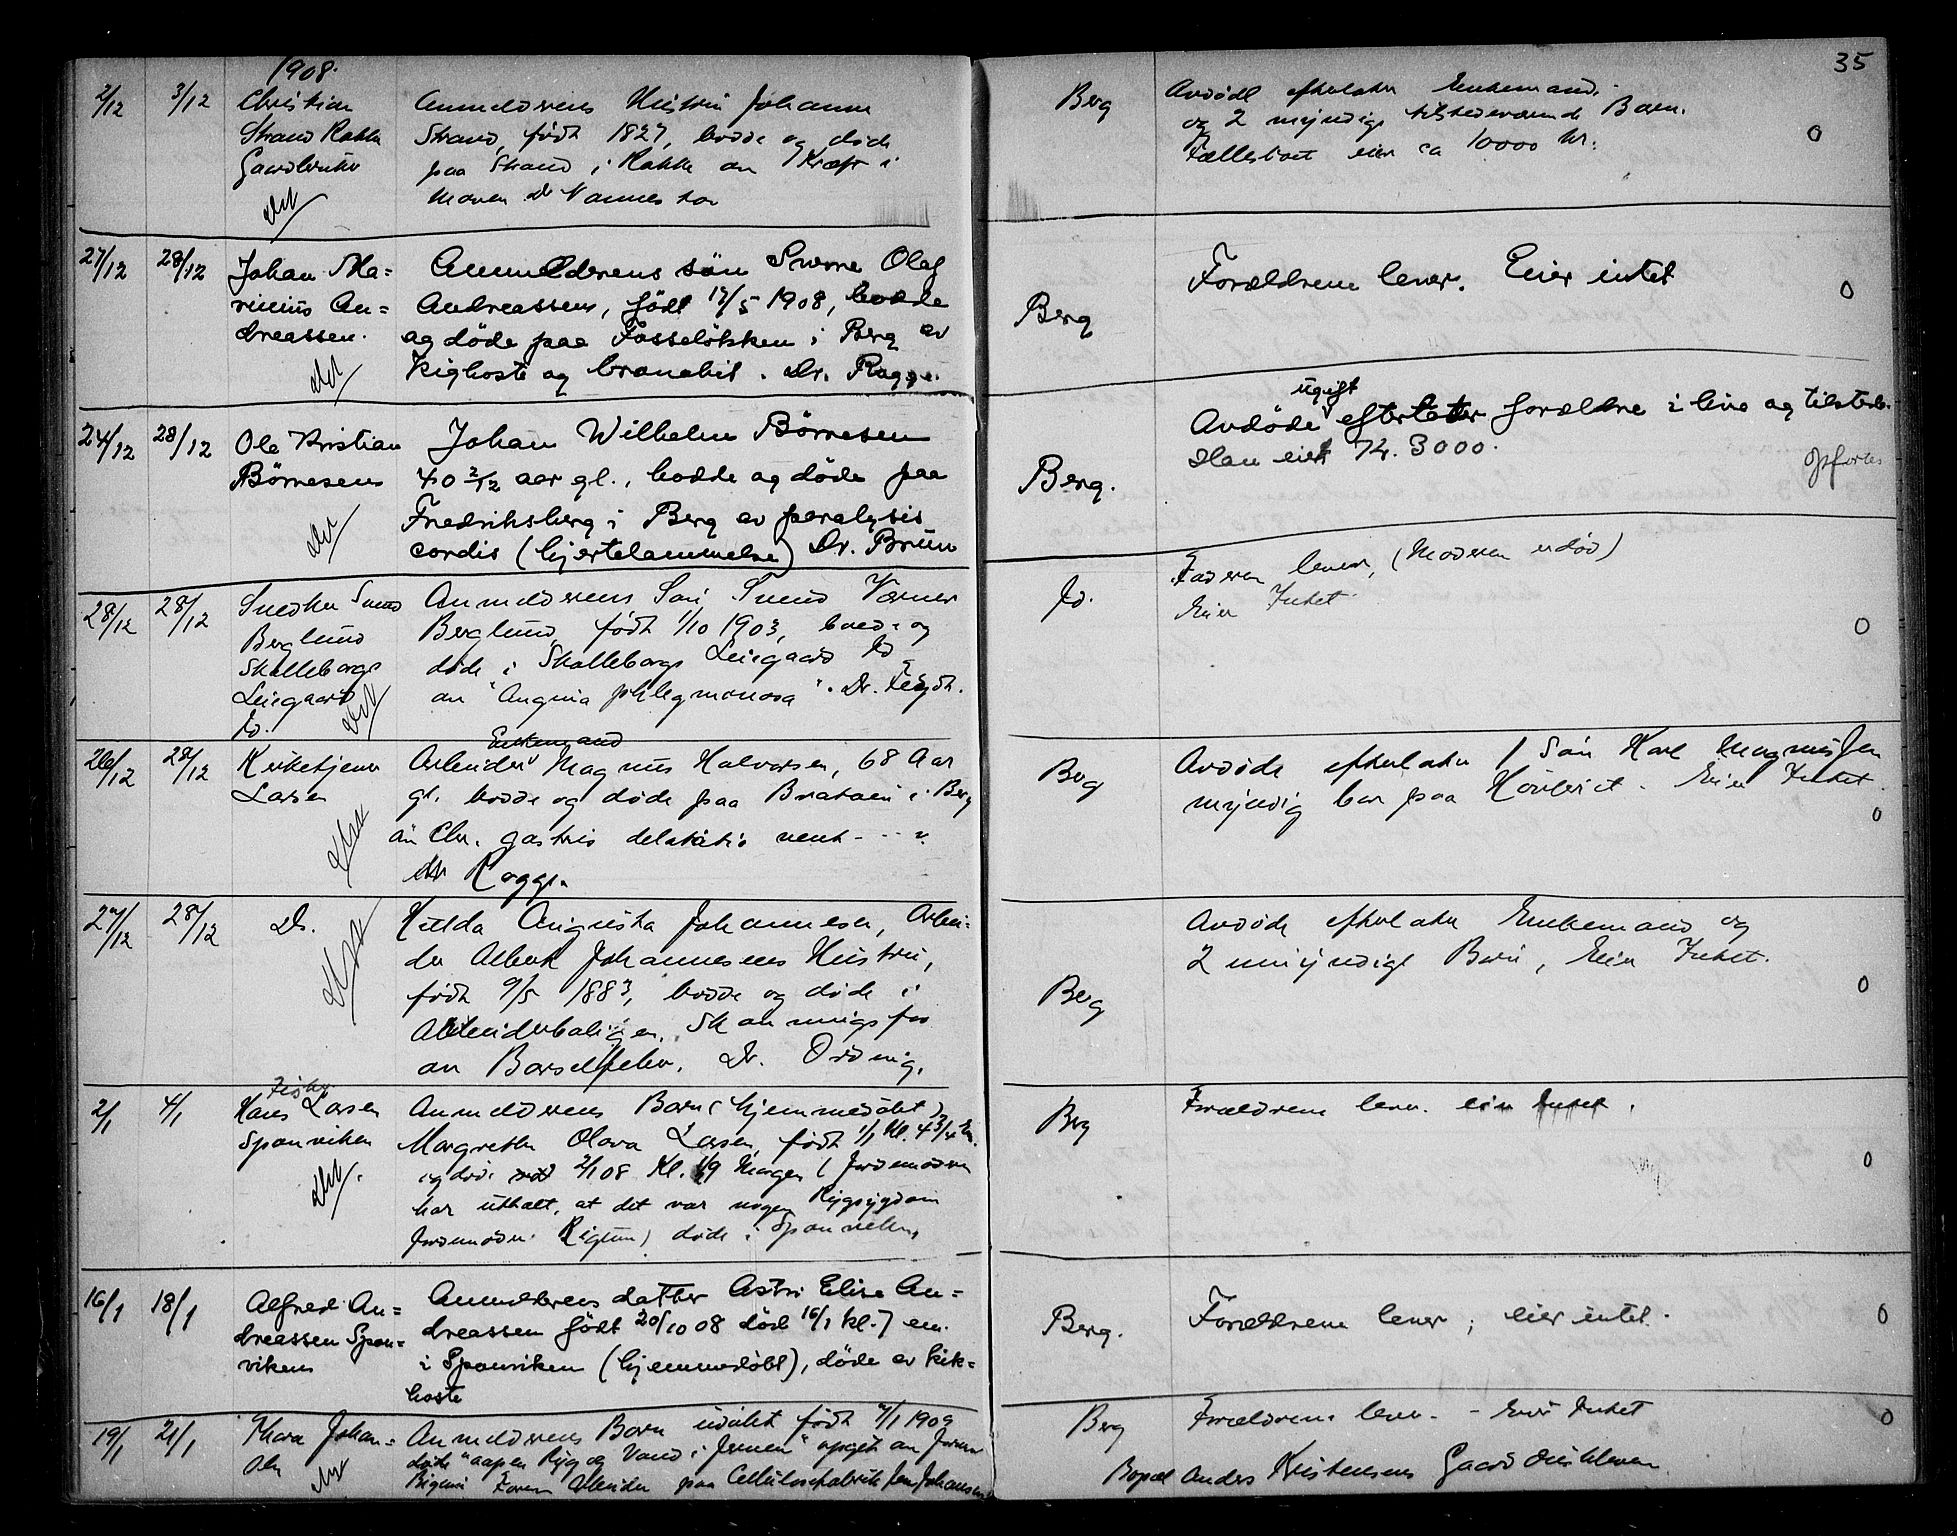 35
1908.
2/12 3/12 Christian Anmelderens Hustru Johanne Berg Avdøde efterlater Enkemand
Strand Rakke Strand, født 1827, bodde og døde og 2 myndige tilstedeværende Barn.
Gaardbruker paa Strand i Rakke av Kræft i Fællesboet eier ca 10000 kr. 0
Maven Dr Vannes
27/12 28/12 Johan Ma= Anmelderens søn Sverre Olaf Berg Forældrene lever. Eier intet 0
rinius An= Andreassen, født 17/5 1908, bodde
dreassen. og døde paa Fosseløkken i Berg av
Kighoste og bronchit. Dr. Rogge.
24/12 28/12 Ole Kristian Johan Wilhelm Børresen Berg. Avdøde ugift efterlater forældre i live og tilstede.
Børresen 40 2/12 aar gl., bodde og døde paa Han eier Kr. 3000.
Fredriksberg i Berg av paralysis
cordis (hjertelammelse) Dr. Bruun
28/12 28/12 Snedker Svend Anmelderens Søn Svend Værner Id. Faderen lever, (Moderen er død)
Berglund Berglund, født 1/10 1903, boed. og Eier Intet 0
Skalleborgs døde i Skalleborgs Leiegaard Id
Leiegaard av "Angina phlegmonosa". Dr.
Id.
26/12 28/12 Kirketjener Arbeider Enkemand Magnus Halvorsen, 68 Aar Berg Avdøde efterlater 1 Søn Karl Magnussen
Larsen gl. bodde og døde paa Brataen i Berg myndig bor paa Høvleriet. Eier Intet. 0
av Chr. gastris
Dr Rogge.
27/12 28/12 Do. Hilda Augusta Johannesen, Arbei= Berg Avdøde efterlater Enkemand og
der Albert Johannesens Hustru, 2 umyndige Barn, Eier Intet. 0
født 9/5 1883, bodde og døde i
Arbeiderboligen,
av Barselfeber. Dr. Ording.
2/1 4/1 Fisker Hans Larsen Anmelderens Barn (hjemmedøbt) Berg Forældrene lever. Eier Intet. 0
Sponviken Margrethe Olava Larsen, født 1/1 Kl. 4 3/4 Em.
og død 2/1 08 Kl. 1/2 9 Morgen (Jordemoderen
har uttalt, at det var nogen Rygsygdom
Jordemoder ) døde i Sponviken
16/1 18/1 Alfred An= Anmelderens datter Astri Elise An= Berg. Forældrene lever; eier intet. 0
dreassen Spon= dreassen født 20/10 08 død 16/1 kl. 7 em.
viken i Sponviken (hjemmedøbt), døde av kik=
hoste
19/1 21/1 Thora Johan= Anmelderens Barn udøbt født 7/1 1909 Berg Forældrene lever. - Eier Intet 0
døde "aapen Ryg og Vand i Jernen" opgit av Jordm Bopæl Anders Kristensens Gaard
Faren Arbeider paa Cellulosefabrik Jens Johansen